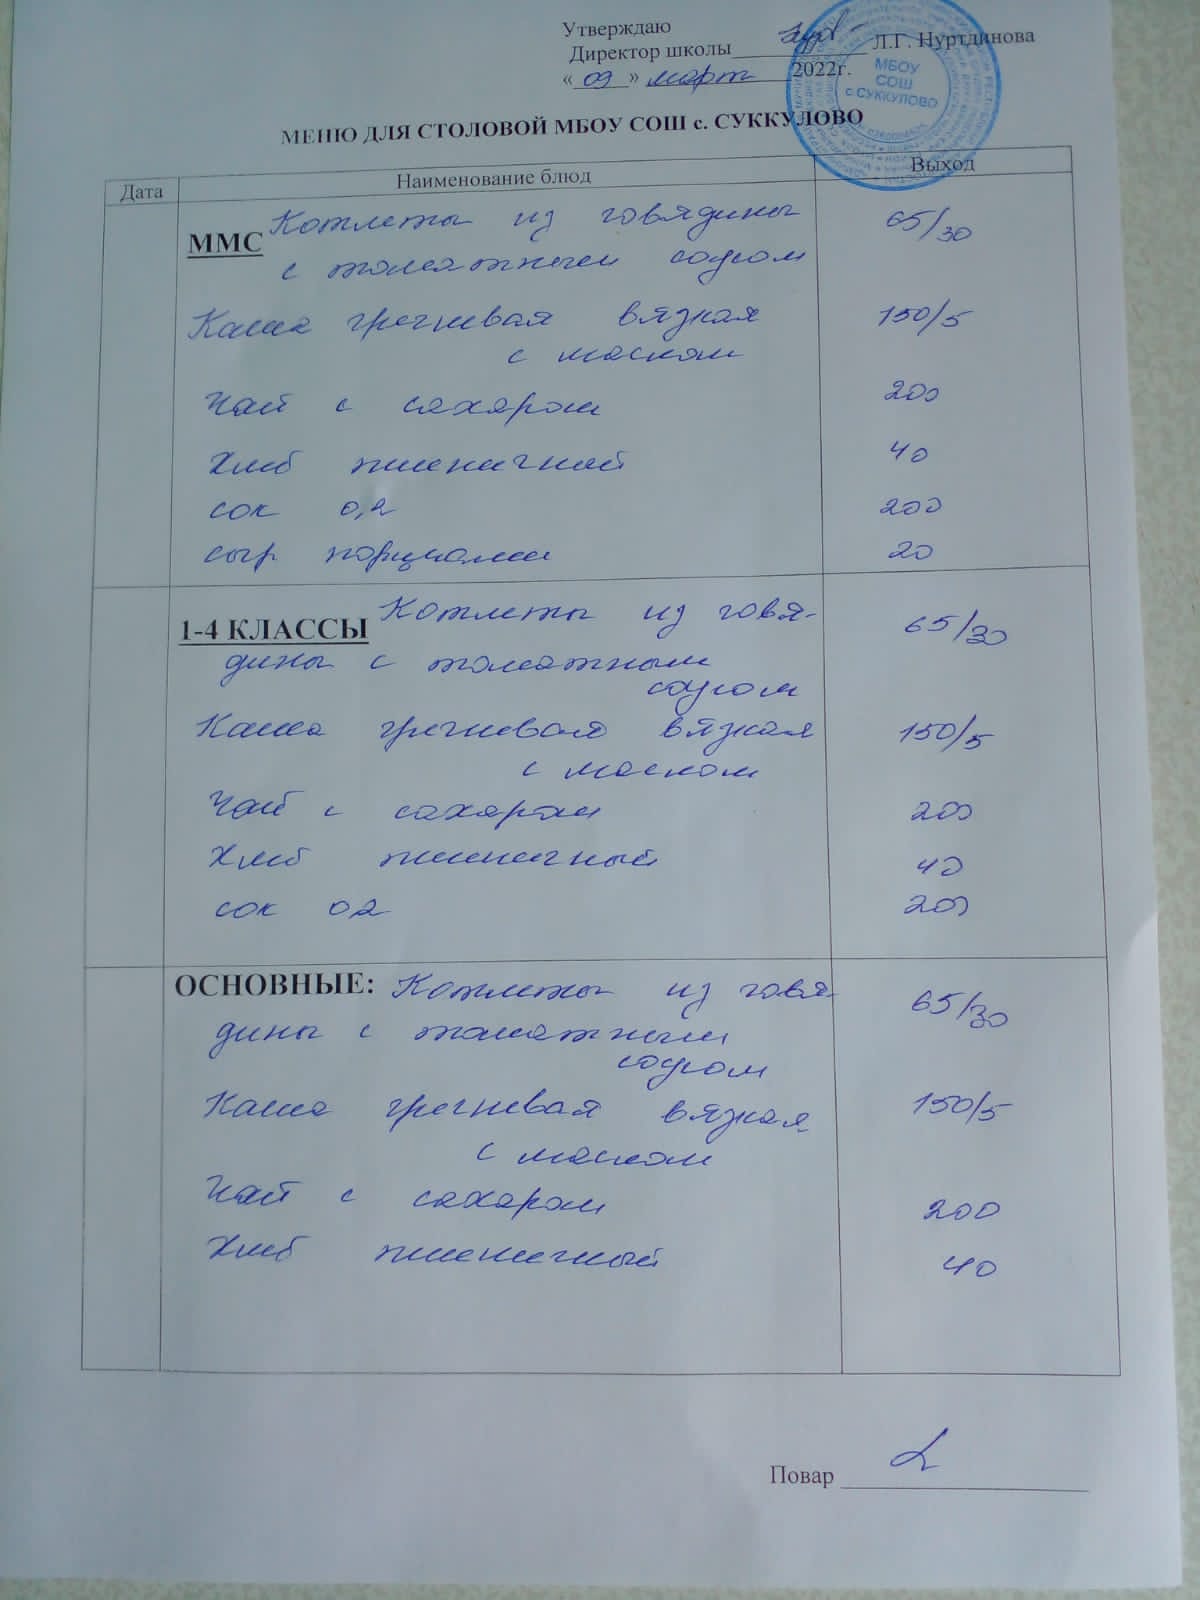 Утверждаю
Директор школы Л.Г. Нуртдинова
« 09 » март 2022г.
МБОУ
СОШ
с СУККУЛОВО
МЕНЮ ДЛЯ СТОЛОВОЙ МБОУ СОШ с. СУККУЛОВО
Дата Наименование блюд Выход
ММС Котлеты из говядины 65/30
с томатным соусом
Каша гречневая вязкая 150/5
с маслом
Чай с сахаром 200
Хлеб пшеничный 40
сок 0,2 200
сыр порциями 20
1-4 КЛАССЫ Котлеты из говя- 65/30
дины с томатным
соусом
Каша гречневая вязкая 150/5
с маслом
Чай с сахаром 200
Хлеб пшеничный 40
сок 0,2 200
ОСНОВНЫЕ: Котлеты из говя- 65/30
дины с томатным
соусом
Каша гречневая вязкая 150/5
с маслом
Чай с сахаром 200
Хлеб пшеничный 40
Повар